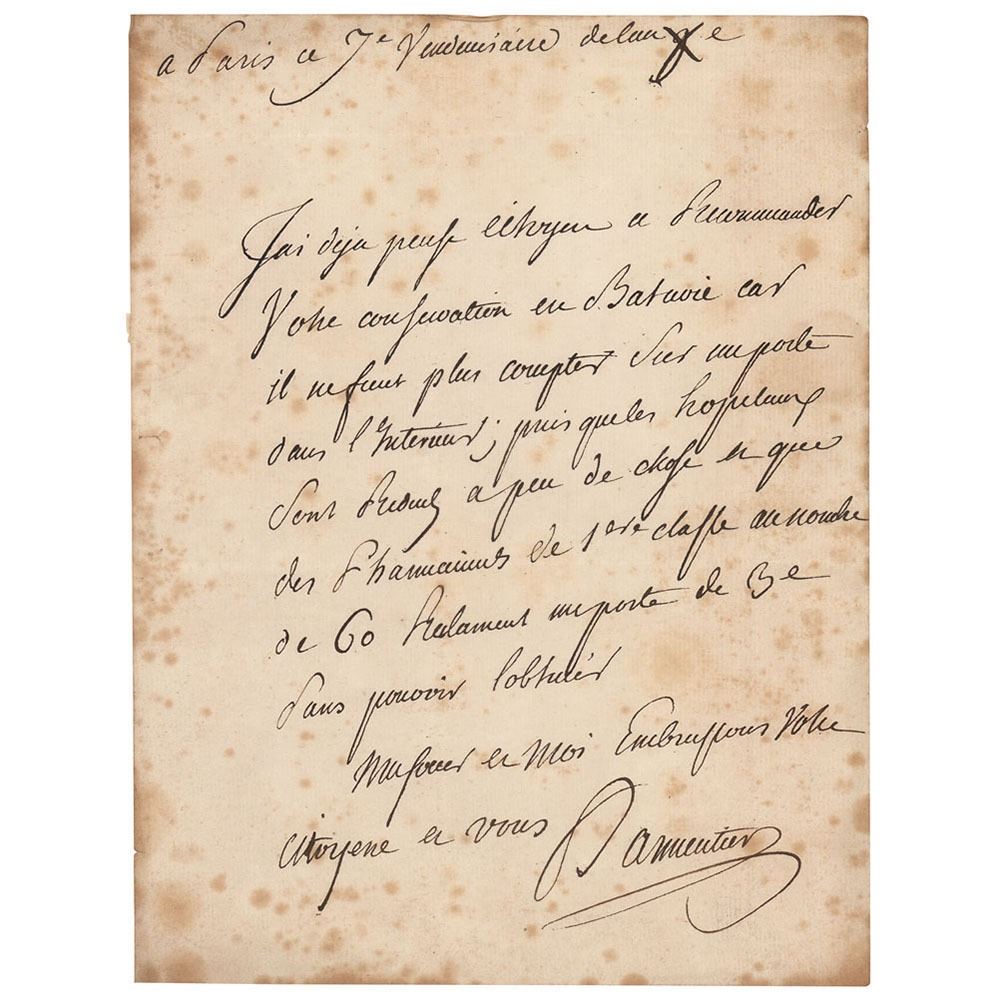 a Paris ce 7e Vendemiaire de lan Xe
Jai deja pensé citoyen a Recommander
Votre conservation en Batavie car
il ne faut plus compter Sur un poste
dans l'Interieur; puis que les hopitaux
Sont Reduits a peu de chose et que
des Pharmaciens de 1ere classe au nombre
de 60 Reclament un poste de 3e
Sans pouvoir l'obtenir
Ma soeur et Moi Embrassons Votre
citoyene et vous Parmentier